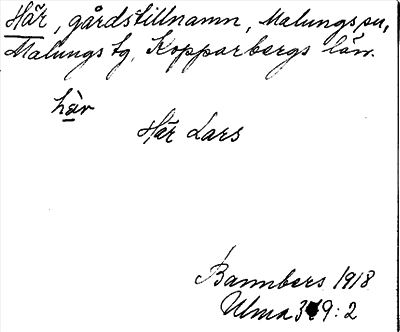 Här, gårdstillnamn, Malungs sn,
Malungs tg, Kopparbergs län.
hàr
Här Lars
Bannbers 1918
Ulma 319:2